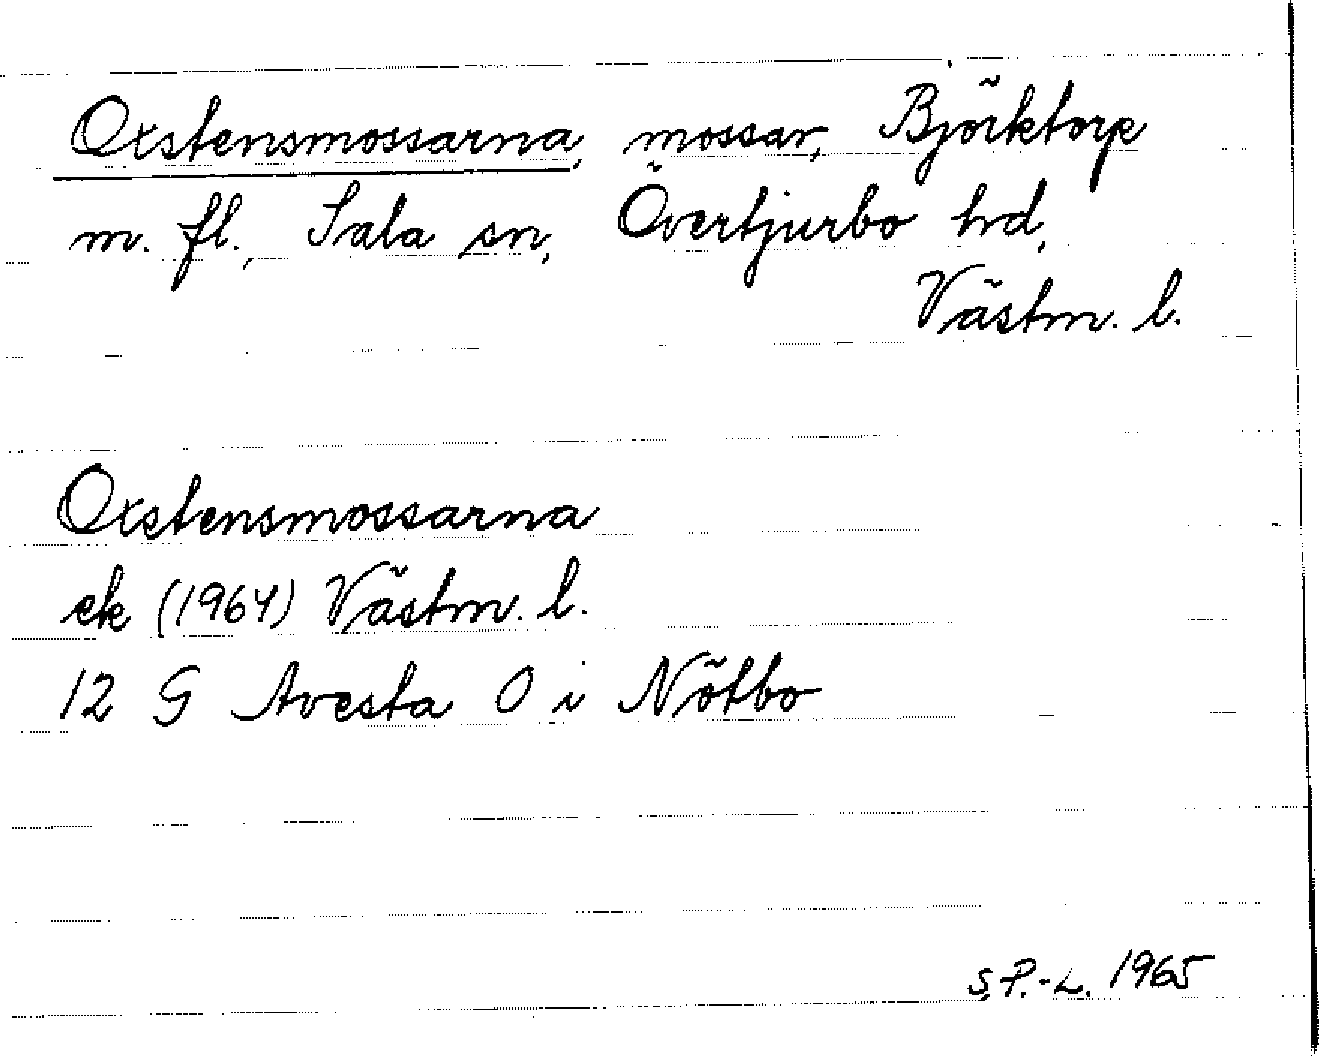 Oxstensmossarna, mossar, Björktorp
m. fl., Sala sn, Övertjurbo hd,
Västm. l.
Oxstensmossarna
ek (1964) Västm. l.
12 G Avesta O i Nötbo
S.P.-L. 1965